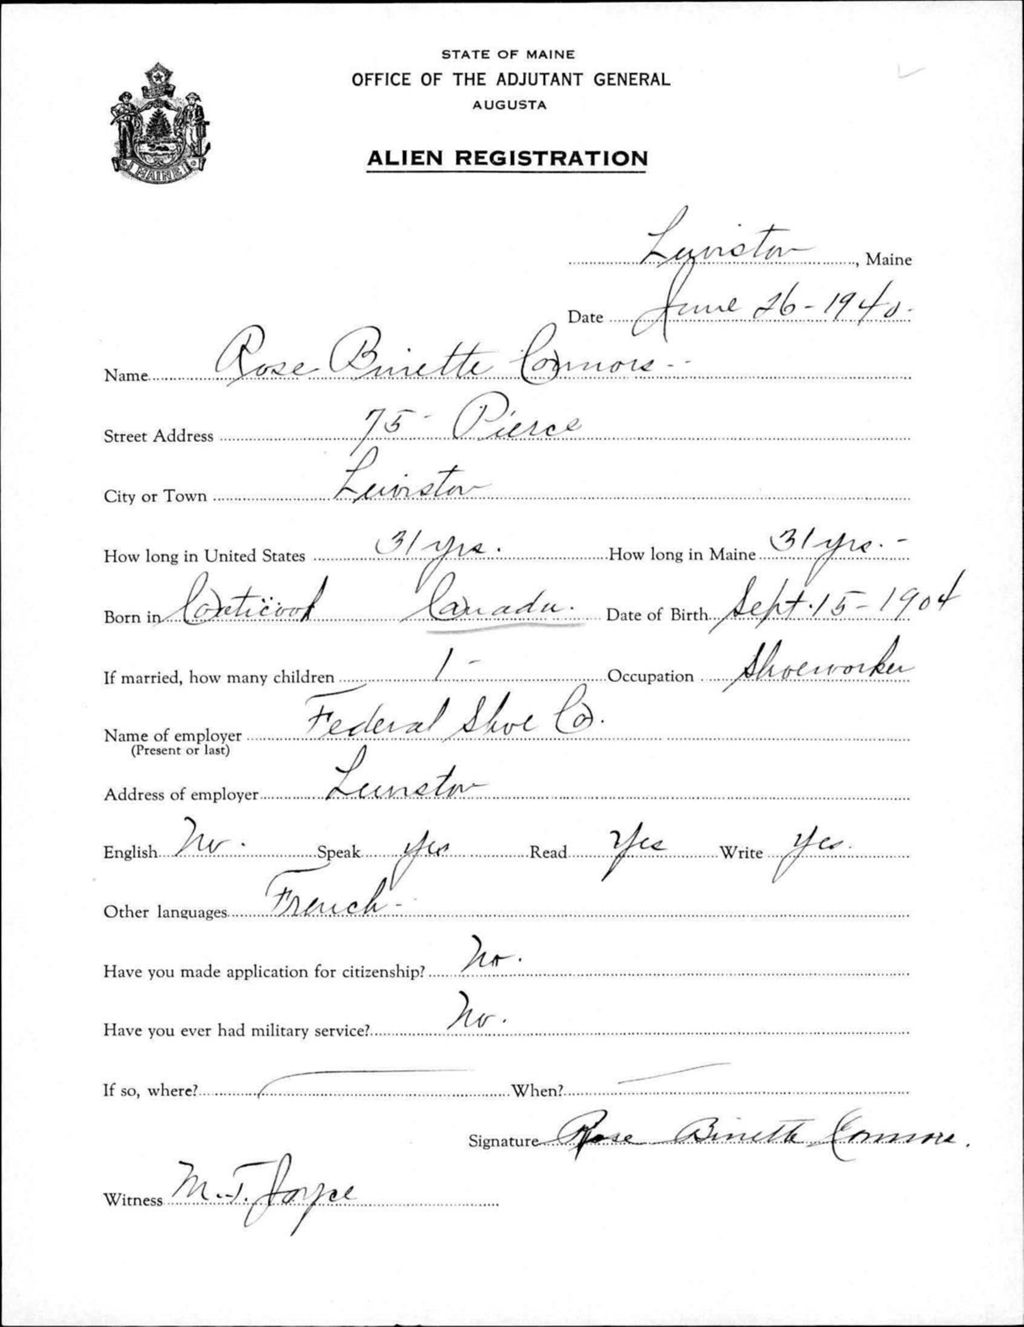 STATE OF MAINE
OFFICE OF THE ADJUTANT GENERAL
AUGUSTA
ALIEN REGISTRATION
MAINE
Lewiston, Maine
Date June 26-1940.
Name Rose Binette Connors-
Street Address 75- Pierce
City or Town Lewiston
How long in United States 31 yrs. How long in Maine 31 yrs.-
Born in Coaticook Canada. Date of Birth Sept. 15-1904
If married, how many children 1- Occupation Shoeworker
Name of employer Federal Shoe Co.
(Present or last)
Address of employer Lewiston
English No. Speak yes Read Yes Write Yes.
Other languages French-
Have you made application for citizenship? No.
Have you ever had military service? No.
If so, where? When?
Signature Rose Binette Connors.
Witness M. T. Joyce